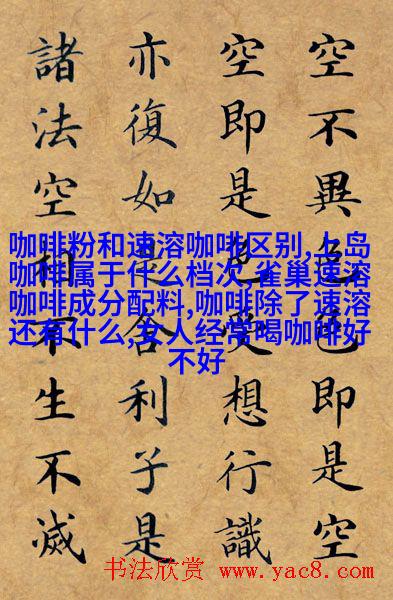 空不異色色即是空
空即是色受想行識
亦復如是舍利子是
諸法空相不生不滅
咖啡粉和速溶咖啡区别,上岛
咖啡属于什么档次,雀巢速溶
咖啡成分配料,咖啡除了速溶
还有什么,女人经常喝咖啡好
不好
书法欣赏 www.yac8.com